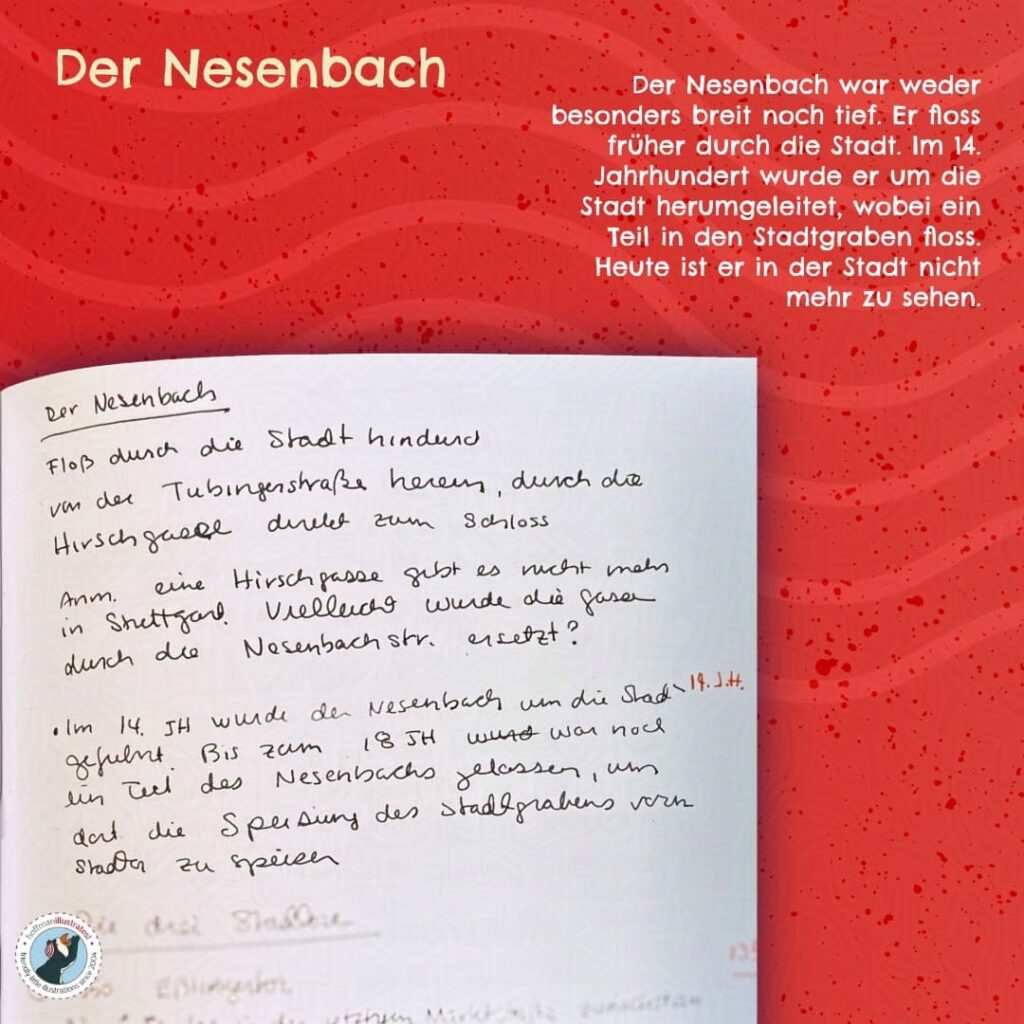 Der Nesenbach
Der Nesenbach war weder
besonders breit noch tief. Er floss
früher durch die Stadt. Im 14.
Jahrhundert wurde er um die
Stadt herumgeleitet, wobei ein
Teil in den Stadtgraben floss.
Heute ist er in der Stadt nicht
mehr zu sehen.
Der Nesenbach
Floß durch die Stadt
von der Tubingerstraße herein, durch die
Hirschgasse direkt zum Schloss
Anm. eine Hirschgasse gibt es nicht mehr
in Stuttgart. Vielleicht wurde die gasse
durch die Nesenbachstr. ersetzt?
• Im 14. JH wurde der Nesenbach um die Stadt 19. J.H.
geführt. Bis zum 18 JH wurd war noch
ein Teil des Nesenbachs gelassen, um
dort die Speisung des Stadtgrabens
zu speisen
Die drei
Eßlingertor
hoffmanillustrates!
friendly little illustrations since 2004